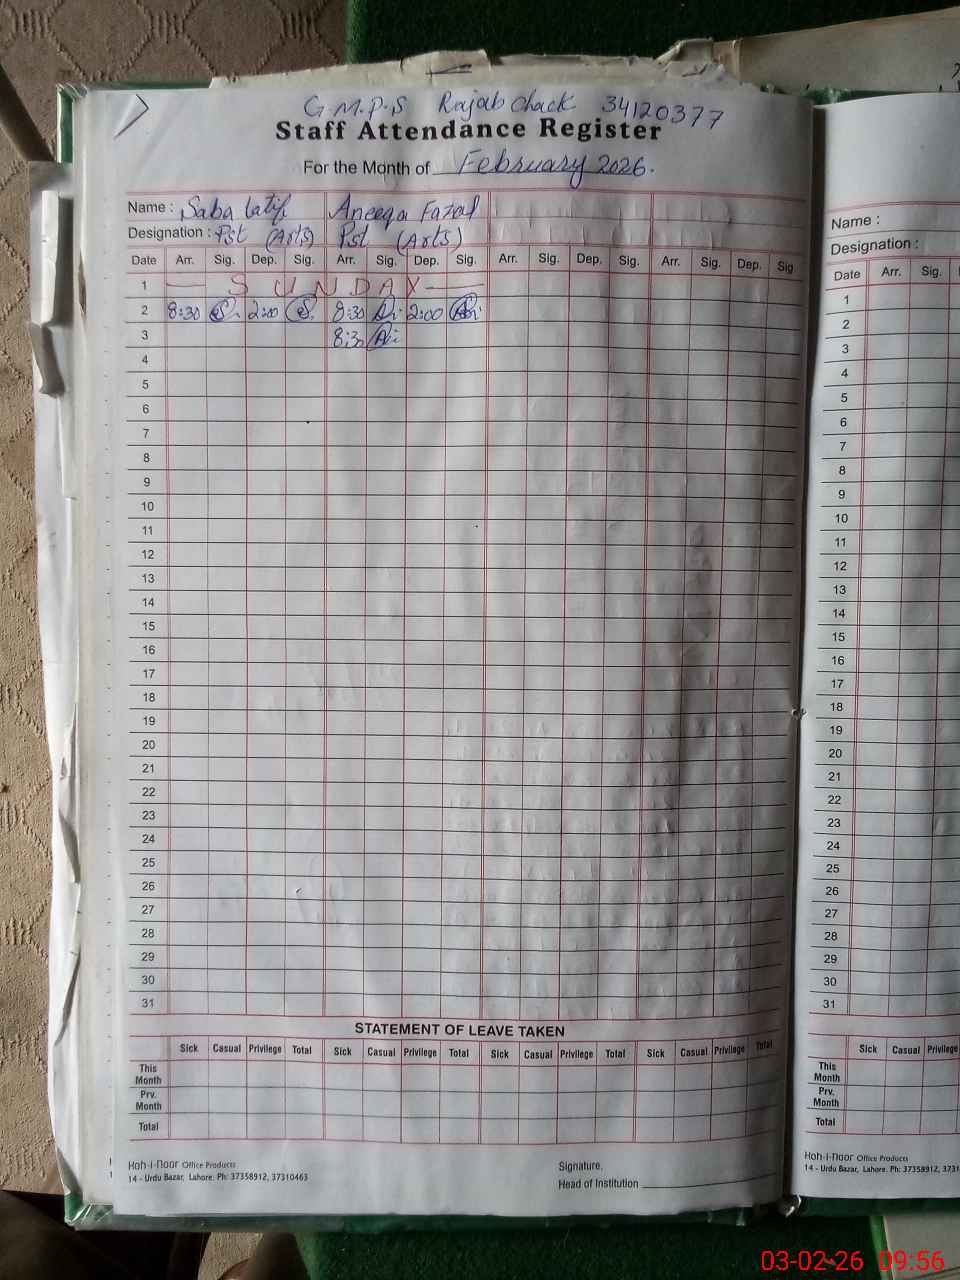 G.M.P.S Rajab Chack 34120377
Staff Attendance Register
For the Month of February 2026.
Name : Saba Latif Aneeqa Fazal
Designation : Pst (Arts) Pst (Arts)
Date Arr. Sig. Dep. Sig. Arr. Sig. Dep. Sig. Arr. Sig. Dep. Sig. Arr. Sig. Dep. Sig
1 SUNDAY
2 8:30 S. 2:00 S. 8:30 2:00
3 8:30
4
5
6
7
8
9
10
11
12
13
14
15
16
17
18
19
20
21
22
23
24
25
26
27
28
29
30
31
STATEMENT OF LEAVE TAKEN
Sick Casual Privilege Total Sick Casual Privilege Total Sick Casual Privilege Total Sick Casual Privilege Total
This Month
Prv. Month
Total
Koh-i-Noor Office Products
14 - Urdu Bazar, Lahore. Ph: 37358912, 37310463
Signature.
Head of Institution
Name :
Designation :
Date Arr. Sig.
1
2
3
4
5
6
7
8
9
10
11
12
13
14
15
16
17
18
19
20
21
22
23
24
25
26
27
28
29
30
31
Sick Casual Privilege
This Month
Prv. Month
Total
Koh-i-Noor Office Products
14 - Urdu Bazar, Lahore. Ph: 37358912, 3731
03-02-26 09:56